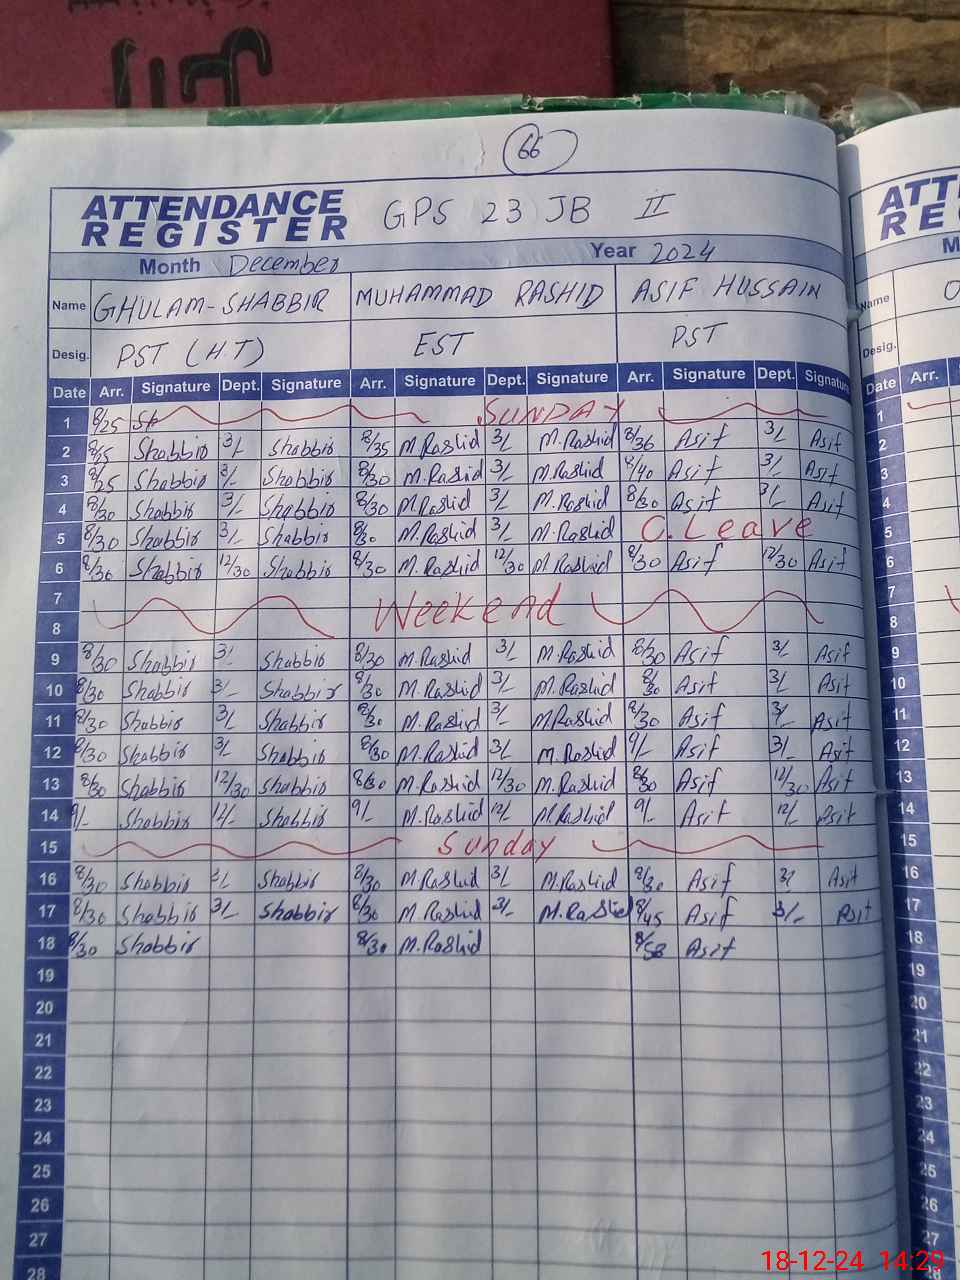 66
ATTENDANCE REGISTER GPS 23 JB II
Month December Year 2024
Name GHULAM-SHABBIR MUHAMMAD RASHID ASIF HUSSAIN
Desig. PST (H.T) EST PST
Date Arr. Signature Dept. Signature Arr. Signature Dept. Signature Arr. Signature Dept. Signature
1 8/25 Sh SUNDAY
2 8/25 Shabbir 3/- Shabbir 8/35 M.Rashid 3/- M.Rashid 8/36 Asif 3/- Asif
3 8/25 Shabbir 3/- Shabbir 8/30 M.Rashid 3/- M.Rashid 8/40 Asif 3/- Asif
4 8/30 Shabbir 3/- Shabbir 8/30 M.Rashid 3/- M.Rashid 8/30 Asif 3/- Asif
5 8/30 Shabbir 3/- Shabbir 8/30 M.Rashid 3/- M.Rashid C.Leave
6 8/30 Shabbir 12/30 Shabbir 8/30 M.Rashid 12/30 M.Rashid 8/30 Asif 12/30 Asif
7 Weekend
8
9 8/30 Shabbir 3/- Shabbir 8/30 M.Rashid 3/- M.Rashid 8/30 Asif 3/- Asif
10 8/30 Shabbir 3/- Shabbir 8/30 M.Rashid 3/- M.Rashid 8/30 Asif 3/- Asif
11 8/30 Shabbir 3/- Shabbir 8/30 M.Rashid 3/- M.Rashid 8/30 Asif 3/- Asif
12 8/30 Shabbir 3/- Shabbir 8/30 M.Rashid 3/- M.Rashid 9/- Asif 3/- Asif
13 8/30 Shabbir 12/30 Shabbir 8/30 M.Rashid 12/30 M.Rashid 8/30 Asif 12/30 Asif
14 9/- Shabbir 12/- Shabbir 9/- M.Rashid 12/- M.Rashid 9/- Asif 12/- Asif
15 Sunday
16 8/30 Shabbir 3/- Shabbir 8/30 M.Rashid 3/- M.Rashid 8/30 Asif 3/- Asif
17 8/30 Shabbir 3/- Shabbir 8/30 M.Rashid 3/- M.Rashid 8/45 Asif 3/- Asif
18 8/30 Shabbir 8/30 M.Rashid 8/58 Asif
19
20
21
22
23
24
25
26
27
28
Name
Desig.
Date Arr.
1
2
3
4
5
6
7
8
9
10
11
12
13
14
15
16
17
18
19
20
21
22
23
24
25
26
27
28
18-12-24 14:29